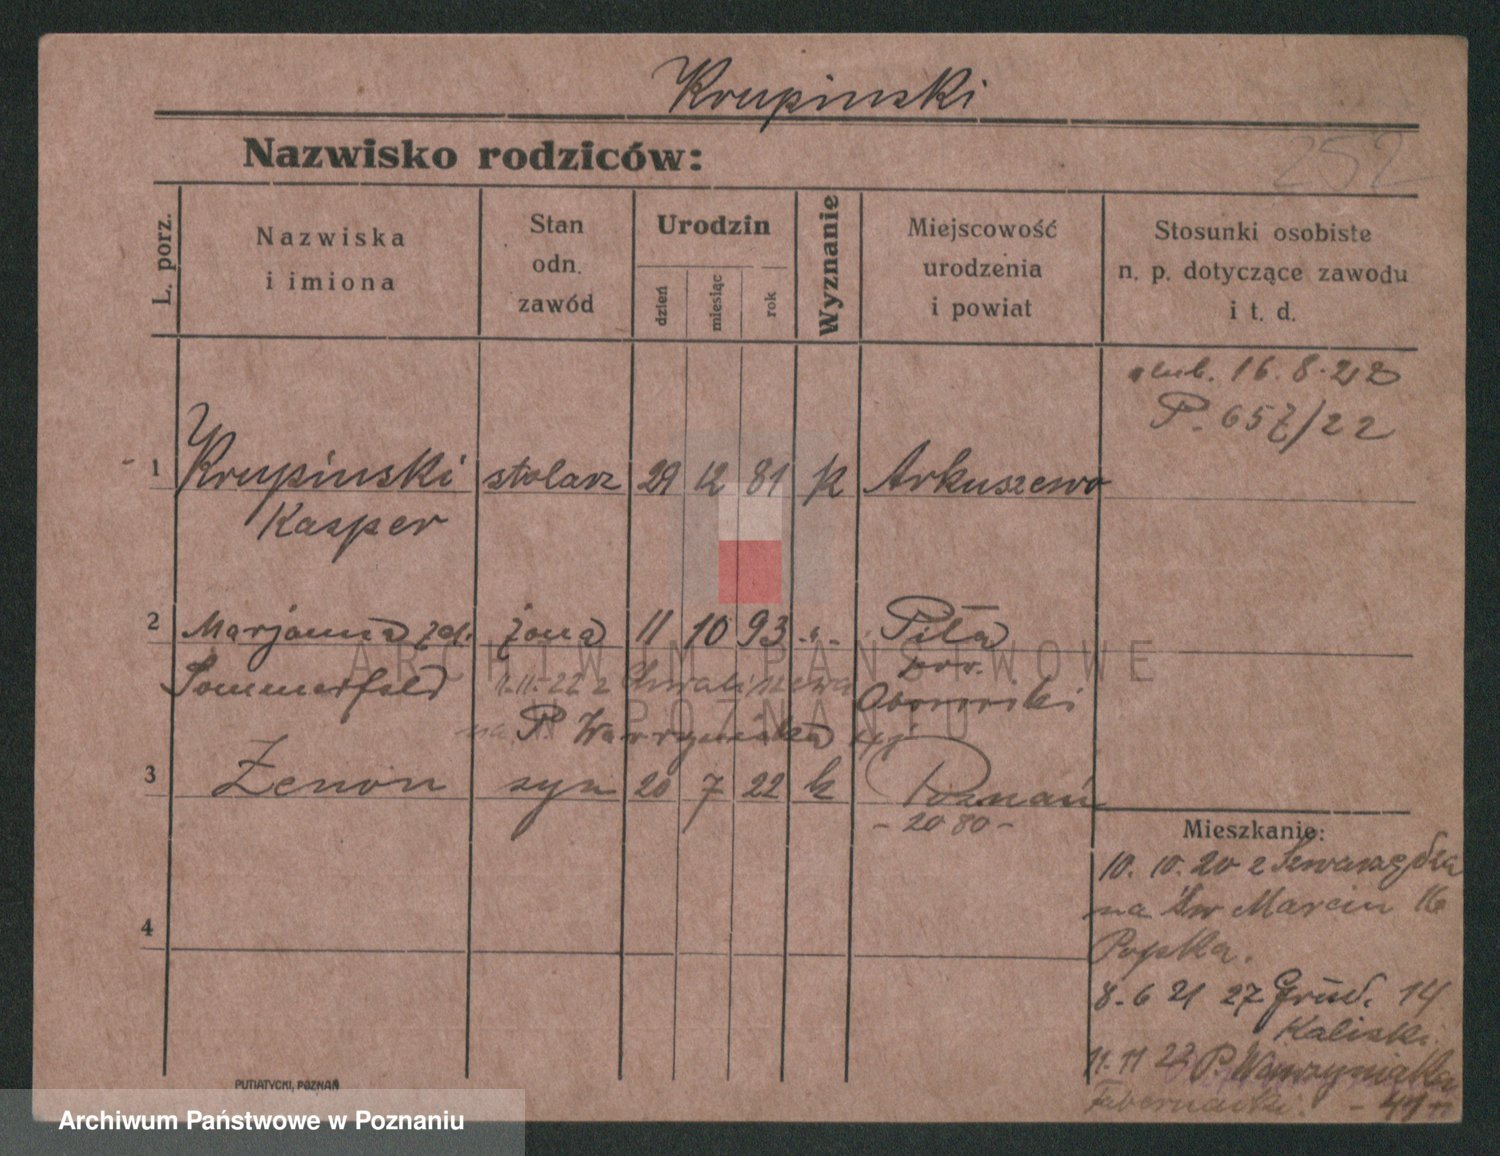 Krupinski
252
Nazwisko rodziców:
L. porz.
Nazwiska
i imiona
Stan
odn.
zawód
Urodzin
dzień
miesiąc
rok
Wyznanie
Miejscowość
urodzenia
i powiat
Stosunki osobiste
n. p. dotyczące zawodu
i t. d.
ślub. 16. 8. 22
P. 657/22
1 Krupinski stolarz 29 12 81 k Arkuszewo
Kasper
2 Marjanna zd. żona 11 10 93 -"- Piła
Sommerfeld 11.11.22 z pow.
Obornicki
na P. Wawrzyniaka
3 Zenon syn 20 7 22 k Poznań
- 2080 -
Mieszkanie:
10. 10. 20 z Swarzędza
na Św Marcin 16
8. 6 21 27 Grud. 14
Kaliski
4
11. 11 22 P. Wawrzyniaka
PUTIATYCKI, POZNAŃ
ARCHIWUM PAŃSTWOWE
W POZNANIU
Archiwum Państwowe w Poznaniu